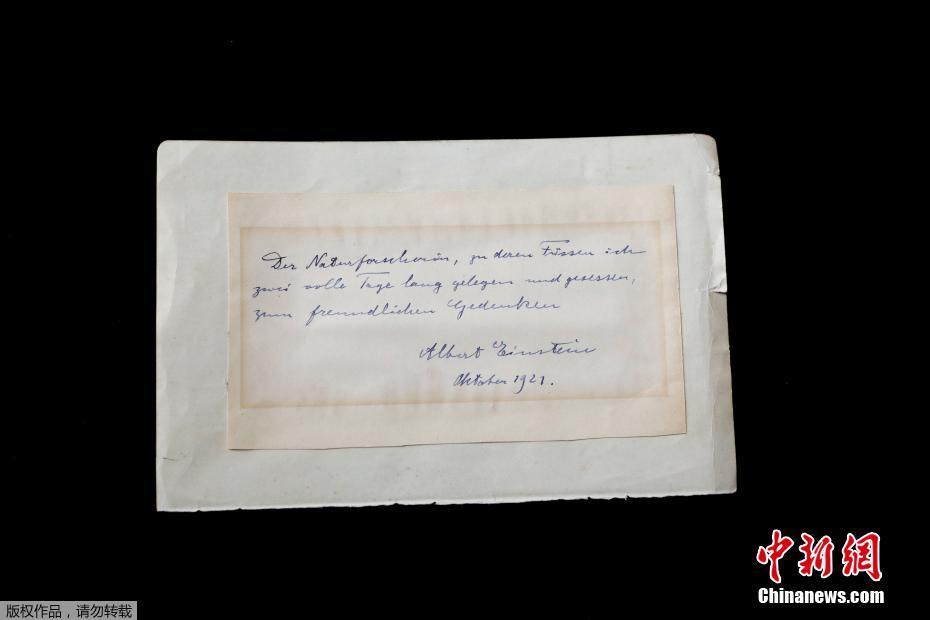 Der Naturforscherin, zu deren Füssen ich
zwei volle Tage lang gelegen und gesessen,
zum freundlichen Gedenken
Albert Einstein
Oktober 1921.
中新网
Chinanews.com
版权作品，请勿转载